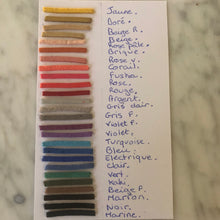 Jaune.
Doré.
Beige R.
Beige.
Rose pâle.
Brique.
Rose v.
Corail.
Fushia.
Rose.
Rouge.
Argent.
Gris clair.
Gris F.
Violet F.
Violet.
Turquoise.
Bleu.
Electrique.
Clair.
Vert.
Kaki.
Beige F.
Marron.
Noir.
Marine.